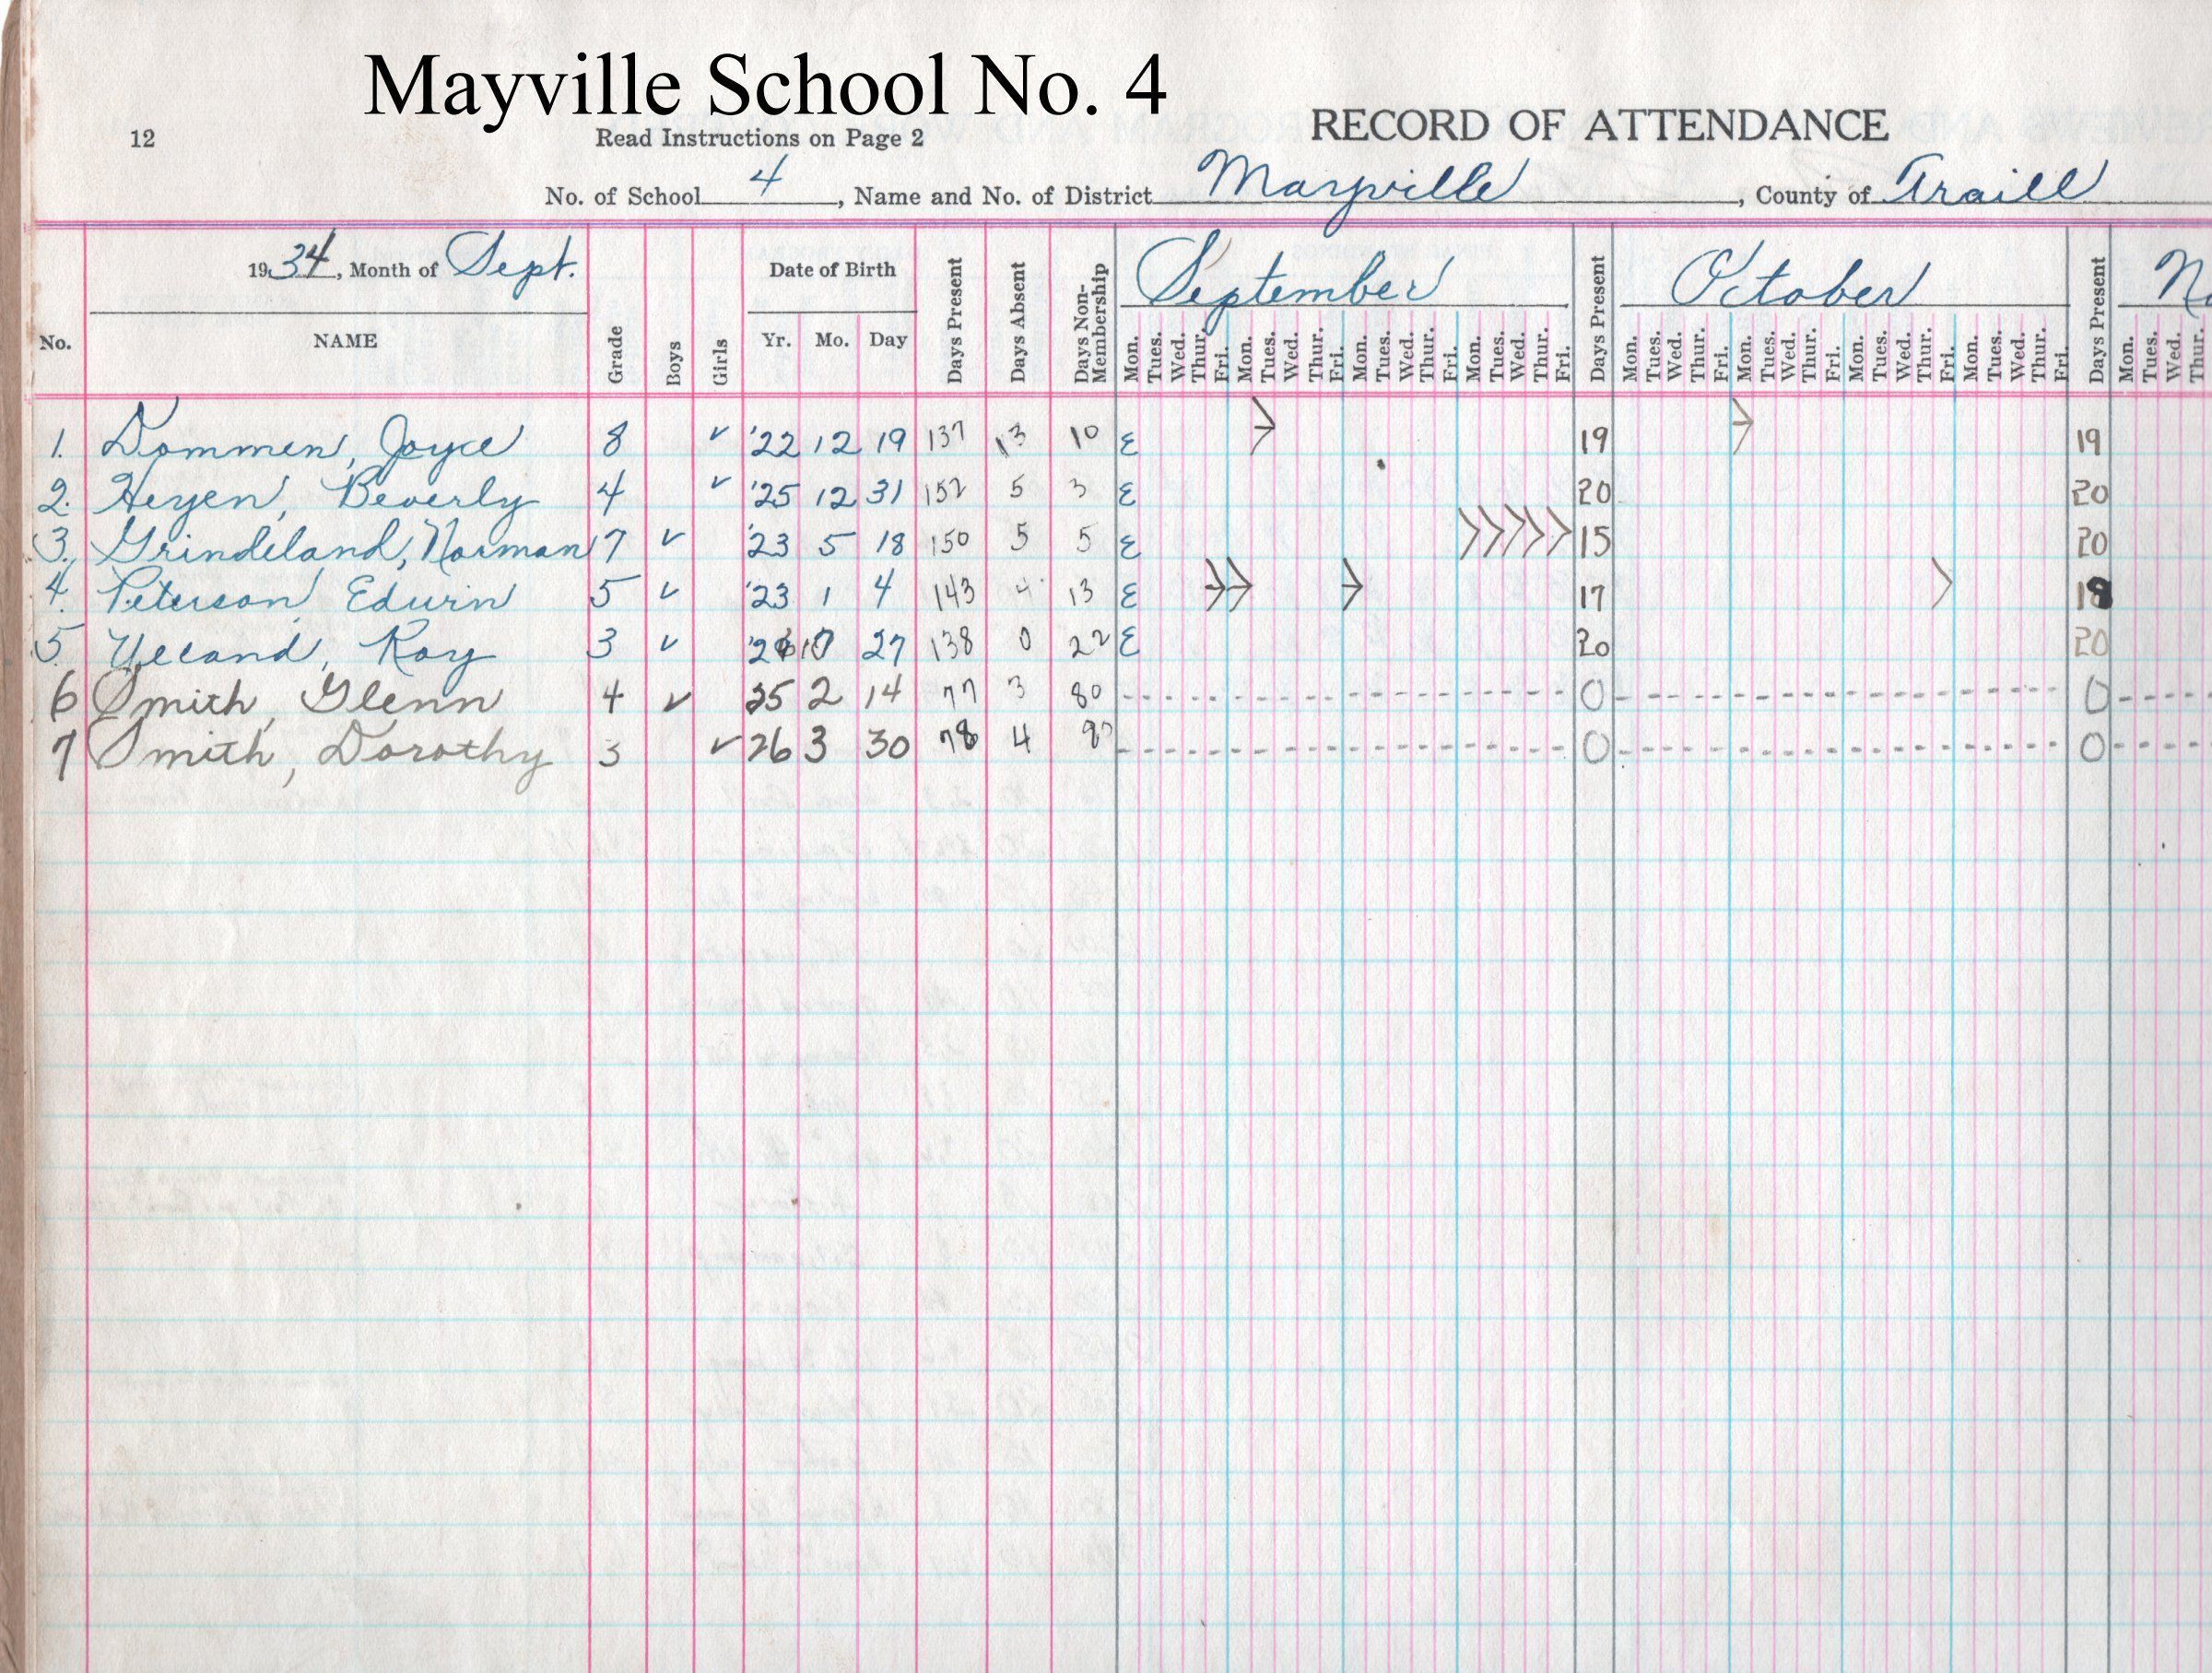 Mayville School No. 4
12 Read Instructions on Page 2 RECORD OF ATTENDANCE
No. of School 4, Name and No. of District Mayville, County of Traill
1934, Month of Sept. Date of Birth September October
No. NAME Grade Boys Girls Yr. Mo. Day Days Present Days Absent Days Non-Membership Mon. Tues. Wed. Thur. Fri. Mon. Tues. Wed. Thur. Fri. Mon. Tues. Wed. Thur. Fri. Mon. Tues. Wed. Thur. Fri. Days Present Mon. Tues. Wed. Thur. Fri. Mon. Tues. Wed. Thur. Fri. Mon. Tues. Wed. Thur. Fri. Mon. Tues. Wed. Thur. Fri. Days Present Mon. Tues. Wed. Thur.
1. Dommen, Joyce 8 ✓ '22 12 19 137 13 10 E 19 19
2. Heyen, Beverly 4 ✓ '25 12 31 152 5 3 E 20 20
3. Grindeland, Norman 7 ✓ '23 5 18 150 5 5 E 15 20
4. Peterson, Edwin 5 ✓ '23 1 4 143 4 13 E 17 18
5. Ueland, Roy 3 ✓ 10 27 138 0 22 E 20 20
6 Smith, Glenn 4 ✓ 25 2 14 77 3 80 0 0
7 Smith, Dorothy 3 ✓ 26 3 30 78 4 0 0